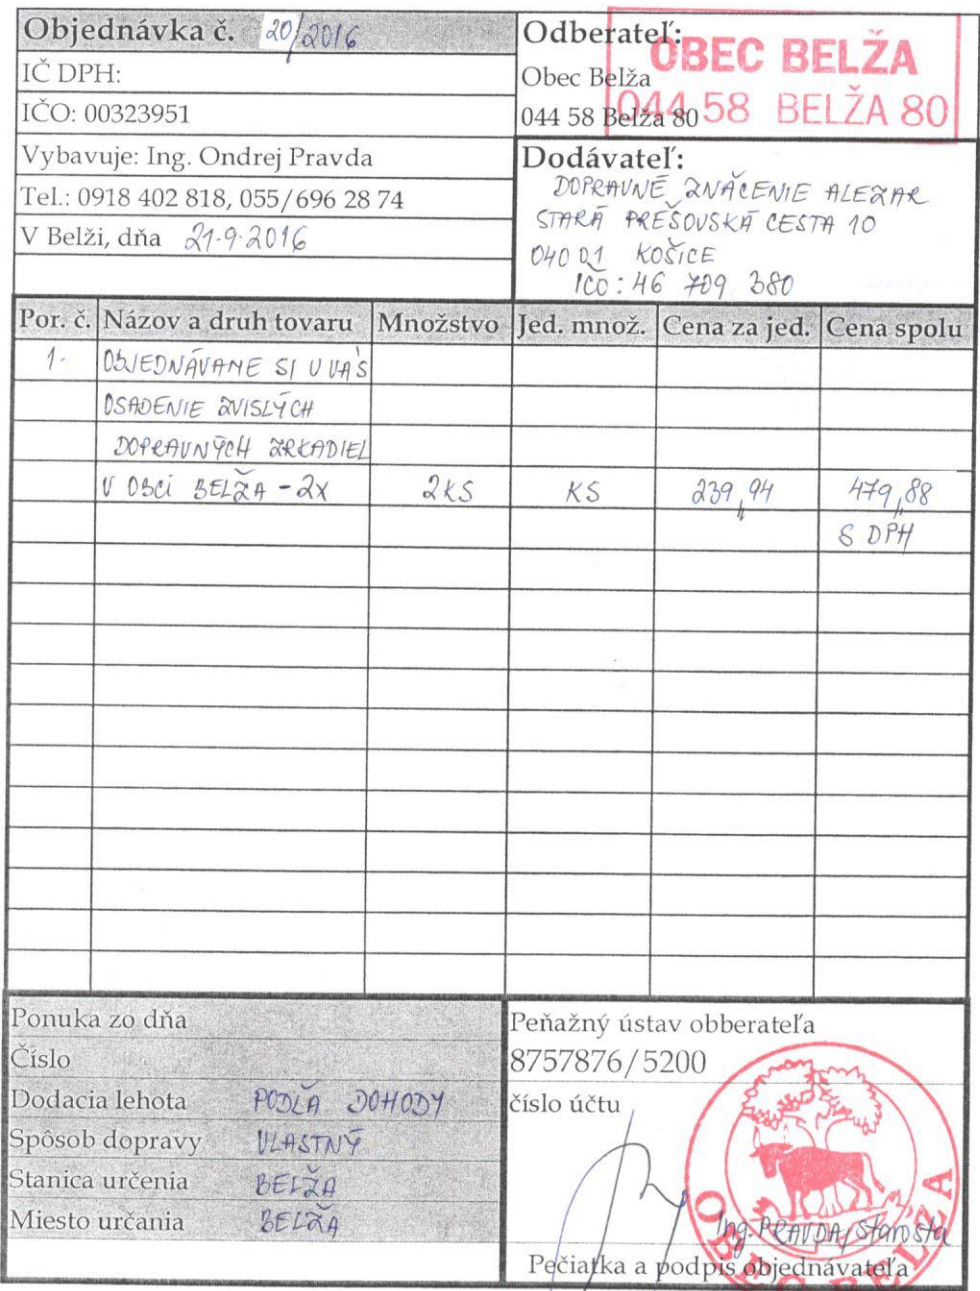 Objednávka č. 20/2016
IČ DPH:
IČO: 00323951
Vybavuje: Ing. Ondrej Pravda
Tel.: 0918 402 818, 055/696 28 74
V Belži, dňa 21.9.2016
Odberateľ:
Obec Belža
044 58 Belža 80
OBEC BELŽA
044 58 BELŽA 80
Dodávateľ:
DOPRAVNÉ ZNAČENIE ALEZAR
STARÁ PREŠOVSKÁ CESTA 10
040 01 KOŠICE
IČO: 46 709 380
Por. č. Názov a druh tovaru Množstvo Jed. množ. Cena za jed. Cena spolu
1. OBJEDNÁVAME SI U VÁS
OSADENIE ZVISLÝCH
DOPRAVNÝCH ZRKADIEL
V OBCI BELŽA - 2X 2KS KS 239,94 479,88
S DPH
Ponuka zo dňa
Číslo
Dodacia lehota PODĽA DOHODY
Spôsob dopravy VLASTNÝ
Stanica určenia BELŽA
Miesto určania BELŽA
Peňažný ústav obberateľa
8757876/5200
číslo účtu
Ing. PRAVDA, starosta
Pečiatka a podpis objednávateľa
OBEC BELŽA